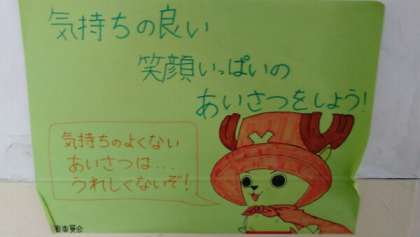 気持ちの良い
笑顔いっぱいの
あいさつをしよう!
気持ちのよくない
あいさつは...
うれしくないぞ!